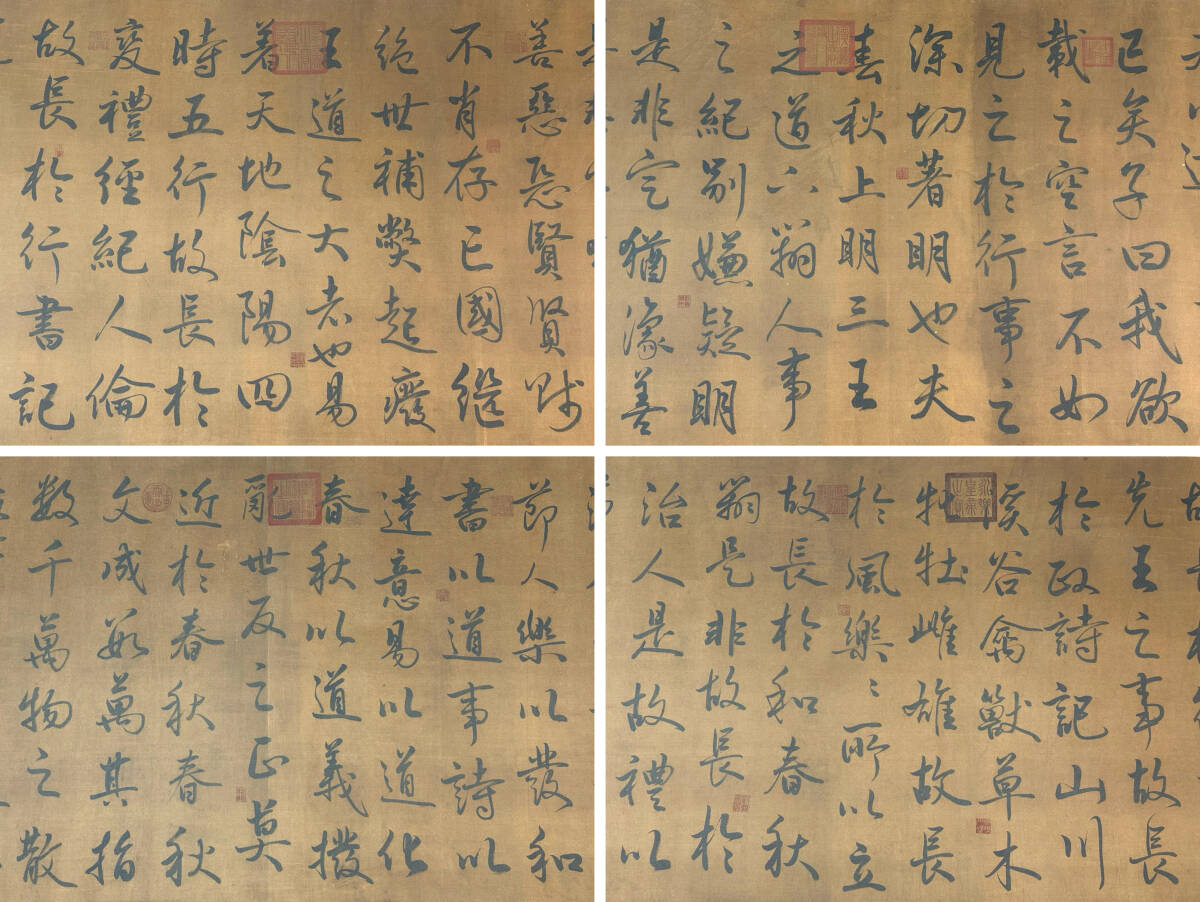 已矣子曰我欲
載之空言不如
見之於行事之
深切著明也夫
春秋上明三王
之道下辨人事
之紀別嫌疑明
是非定猶豫善
善惡惡賢賢賤
不肖存亡國繼
絕世補弊起廢
王道之大者也易
著天地陰陽四
時五行故長於
變禮經紀人倫
故長於行書記
先王之事故長
於政詩記山川
谿谷禽獸草木
牝牡雌雄故長
於風樂〻所以立
故長於和春秋
辨是非故長於
治人是故禮以
節人樂以發和
書以道事詩以
達意易以道化
春秋以道義撥
亂世反之正莫
近於春秋春秋
文成数萬其指
数千萬物之散